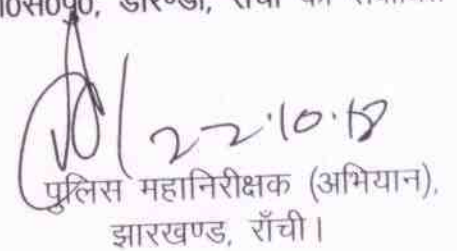 डोरण्डा, राँची
22.10.18
पुलिस महानिरीक्षक (अभियान),
झारखण्ड, राँची।